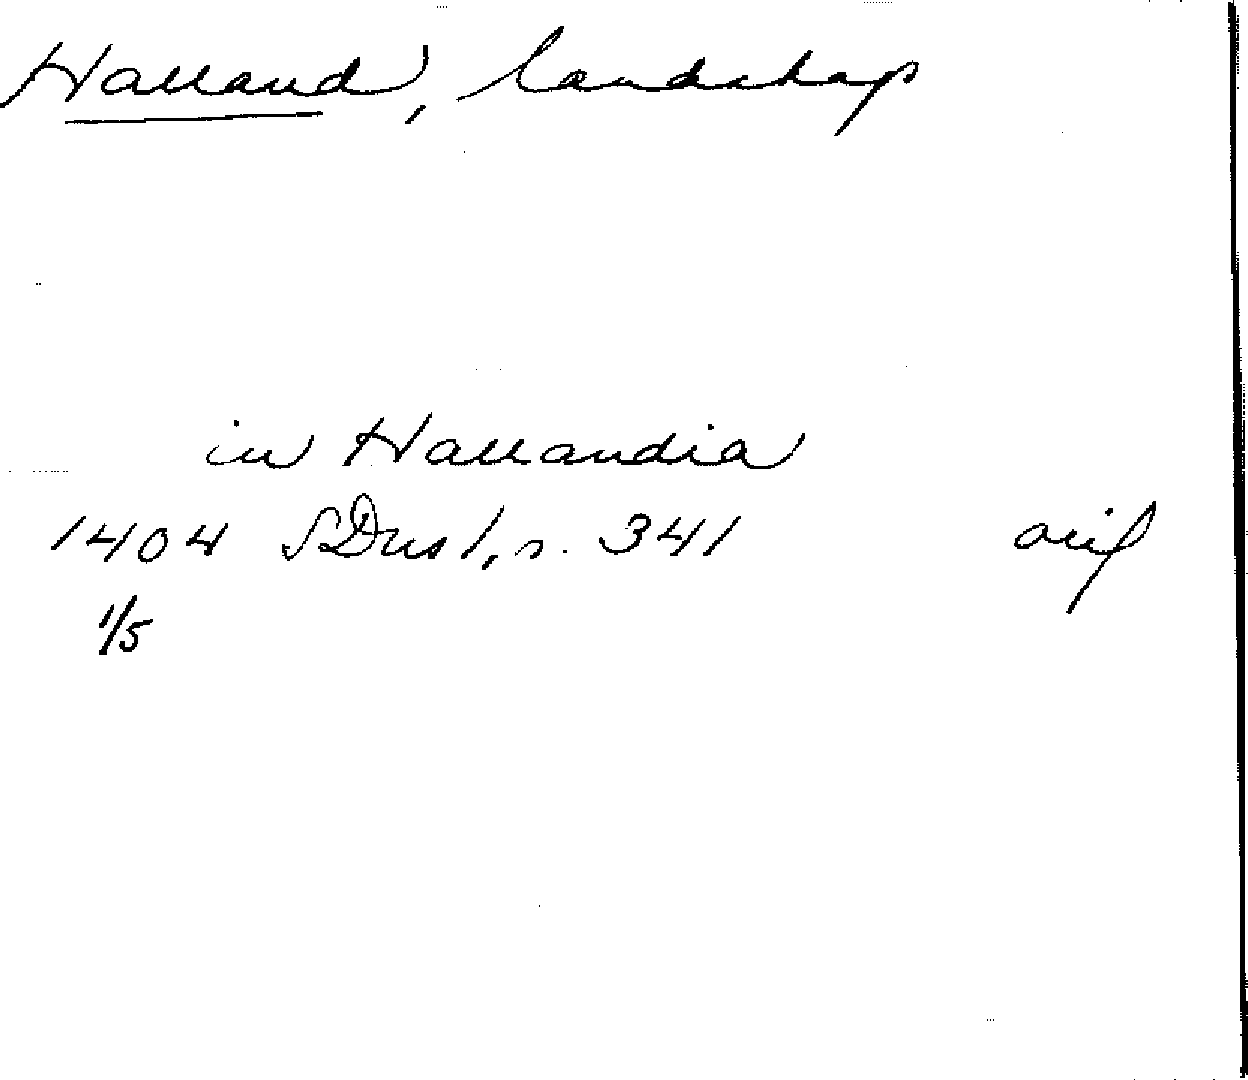 Halland, landskap
in Hallandia
1404 SDns 1, s. 341 orig
1/5